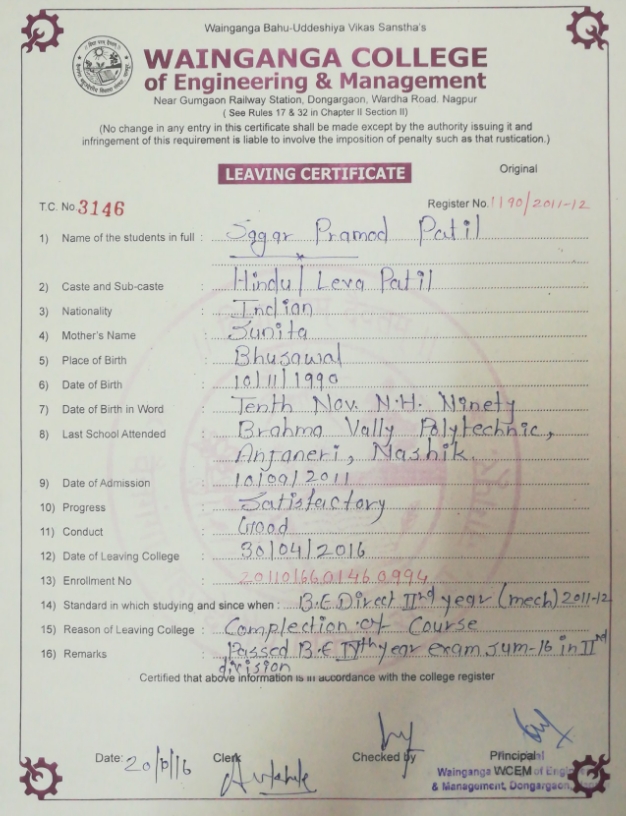 Wainganga Bahu-Uddeshiya Vikas Sanstha's
WAINGANGA COLLEGE
of Engineering & Management
Near Gumgaon Railway Station, Dongargaon, Wardha Road. Nagpur
( See Rules 17 & 32 in Chapter II Section II)
(No change in any entry in this certificate shall be made except by the authority issuing it and
infringement of this requirement is liable to involve the imposition of penalty such as that rustication.)
LEAVING CERTIFICATE Original
T.C. No. 3146 Register No. 1190/2011-12
1) Name of the students in full : Sagar Pramod Patil
2) Caste and Sub-caste : Hindu/ Leva Patil
3) Nationality : Indian
4) Mother's Name : Sunita
5) Place of Birth : Bhusawal
6) Date of Birth : 10/11/1990
7) Date of Birth in Word : Tenth Nov. N.H. Ninety
8) Last School Attended : Brahma Vally Polytechnic,
Anjaneri, Nashik.
9) Date of Admission : 10/09/2011
10) Progress : Satisfactory
11) Conduct : Good
12) Date of Leaving College : 30/04/2016
13) Enrollment No : 2011016601460994
14) Standard in which studying and since when : B.E Direct IInd year (mech) 2011-12
15) Reason of Leaving College : Complection of Course
16) Remarks : Passed B.E IVth year exam sum-16 in IInd
division
Certified that above information is in accordance with the college register
Date: Clerk Checked by Principal
Wainganga WCEM of
& Management, Dongargaon,